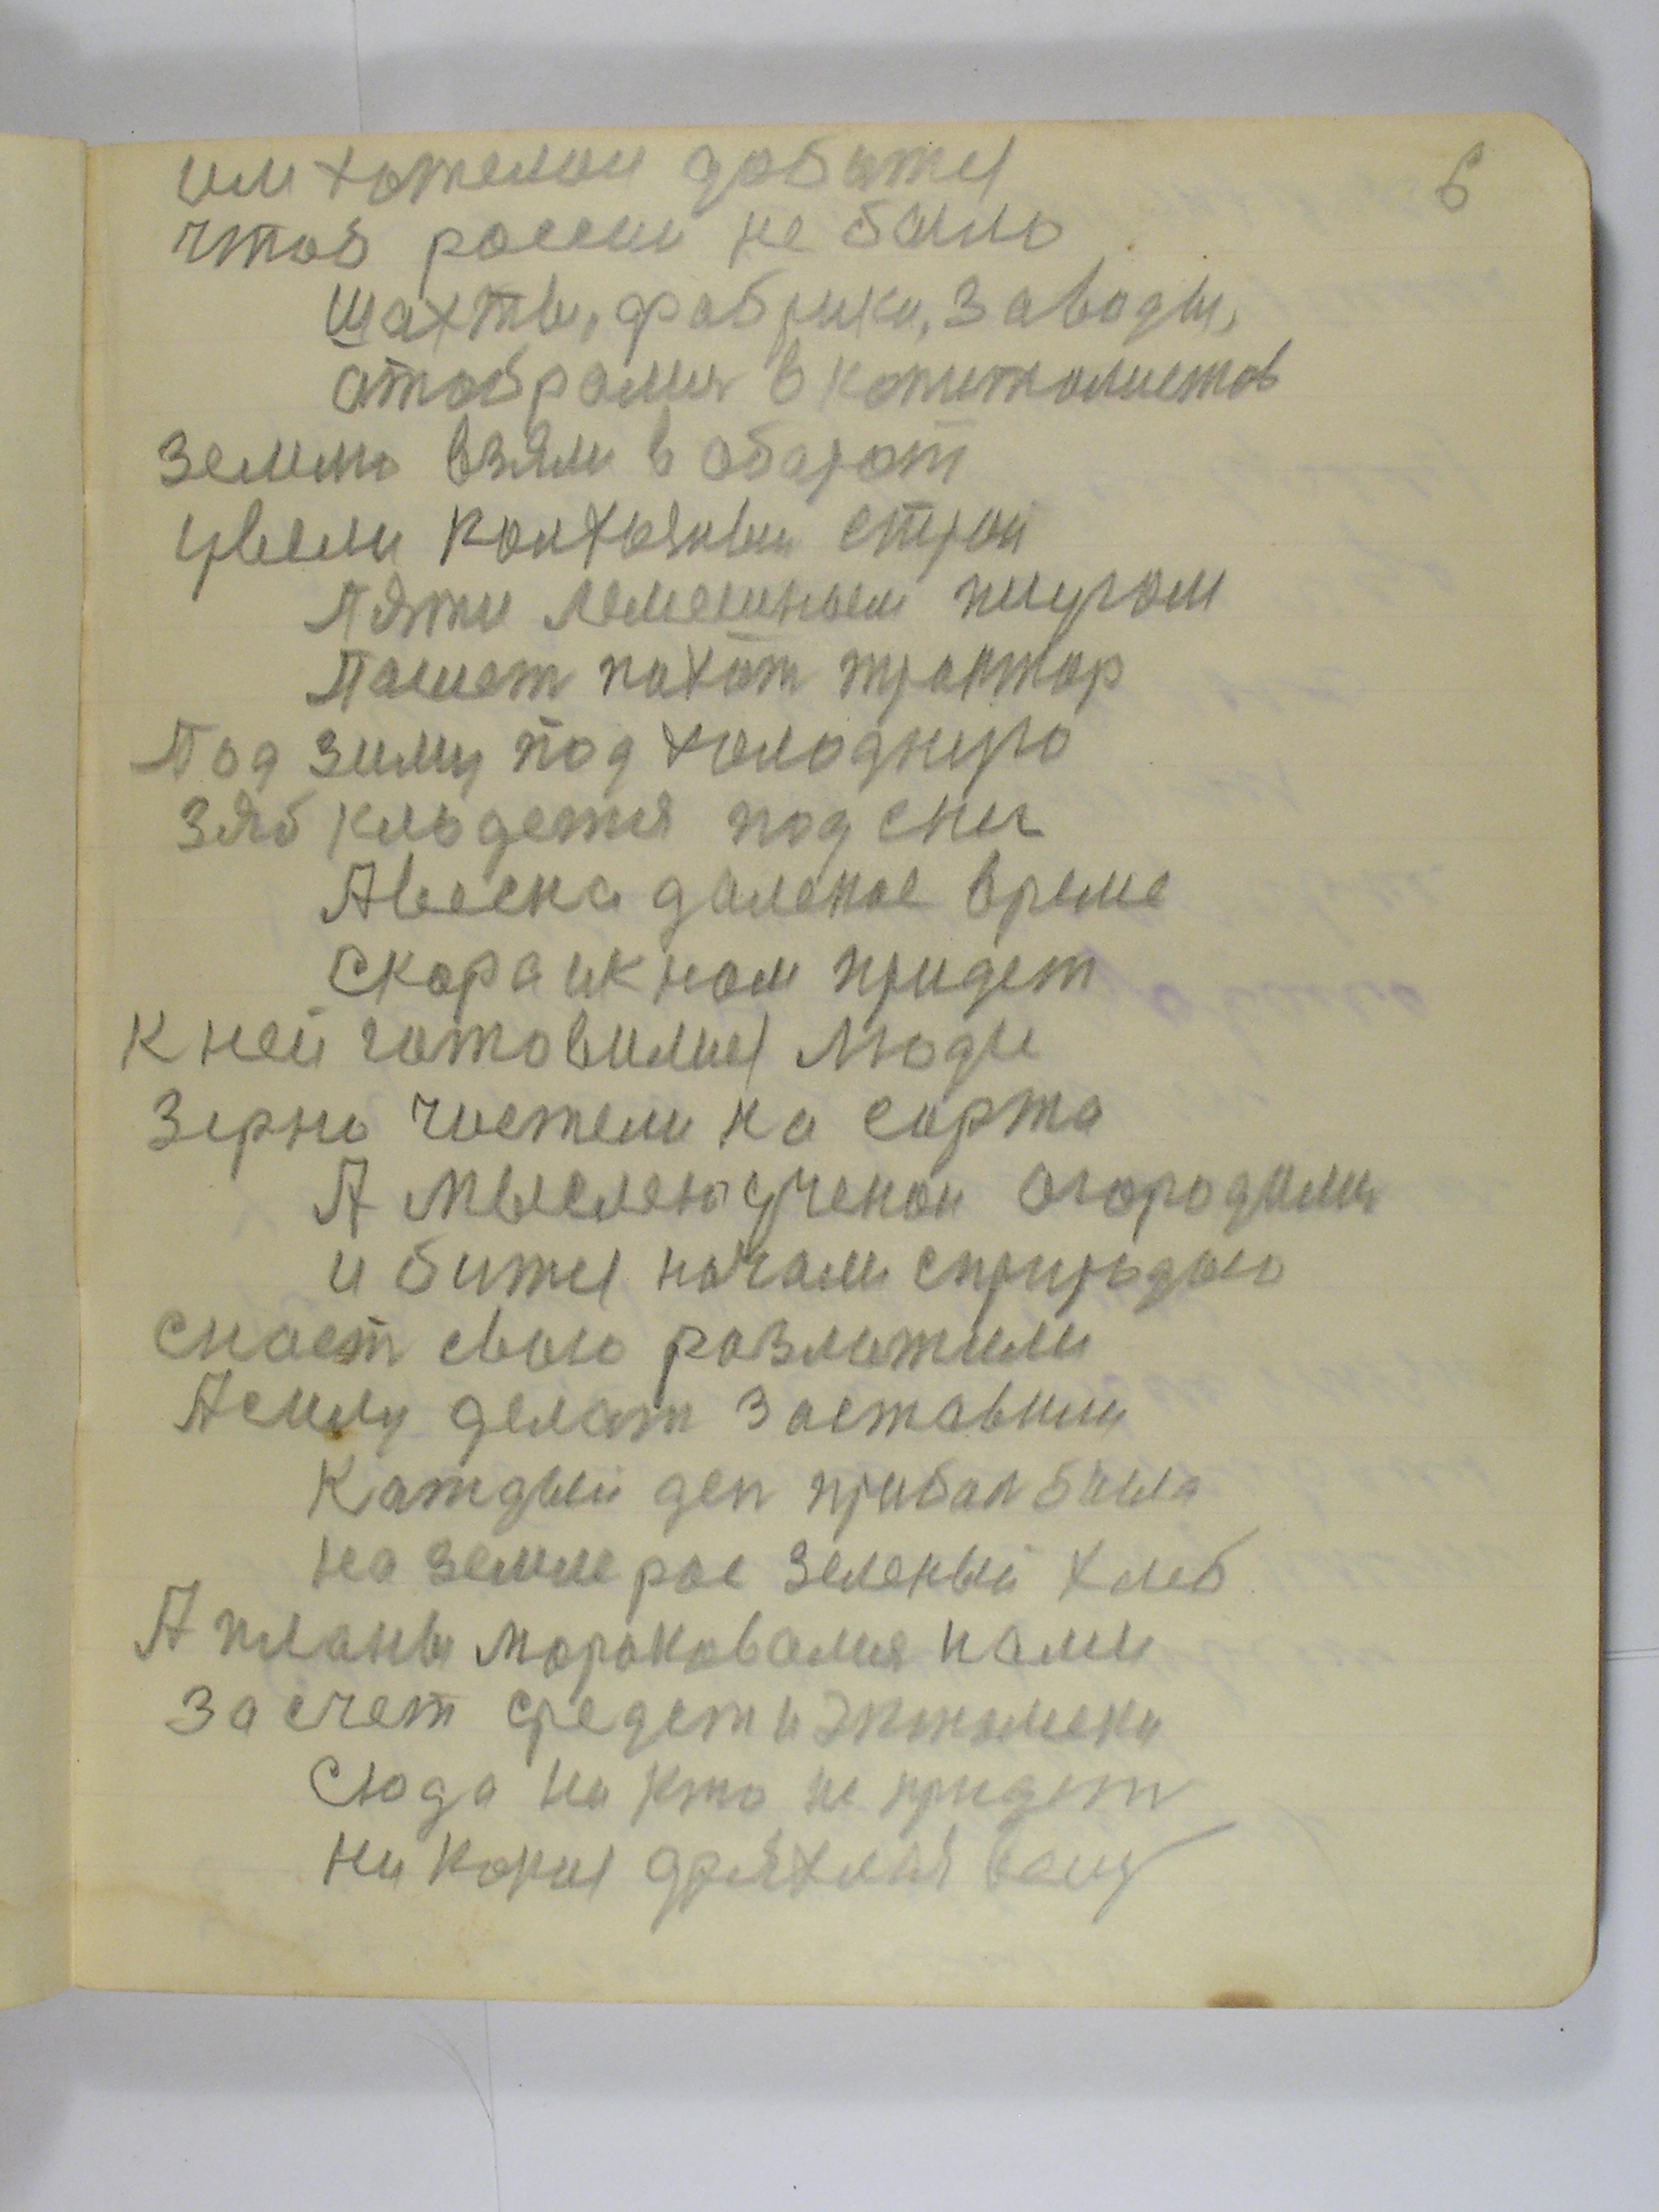 6
им хотелои добится
чтоб россеи не было
шахты, фабрики, заводы,
атобрамия в копитолистов
землю взяли в абарот
цвели колхозныи строй
Пяти лемешным плугом
Пашет пахот трактор
Под зиму под холодную
Зяб кладется под снег
А весна далекое време
Скора и к нам придет
К ней готовились люди
Зерно чистели на сорта
А мыслею ученои огородили
и бится начали с природою
снаст свою разложили
А силу делат заставили
Каждый ден прибол была
на земле рос зеленый хлеб
А планы мораковалия нами
За счет средств и
Сюда на кто не придет
ни какия дряхлая вещ